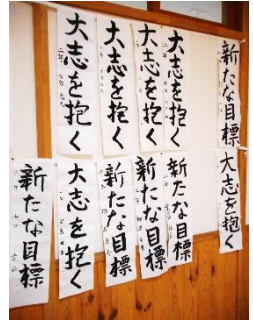 新たな目標
大志を抱く
大志を抱く
大志を抱く
大志を抱く
大志を抱く
新たな目標
新たな目標
新たな目標
大志を抱く
新たな目標